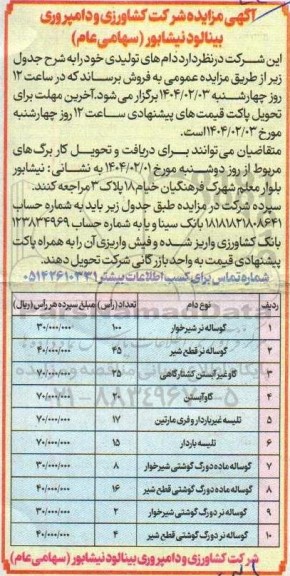 آگهی مزایده شرکت کشاورزی و دامپروری
بینالود نیشابور (سهامی عام)
این شرکت در نظر دارد دام های تولیدی خود را به شرح جدول
زیر از طریق مزایده عمومی به فروش برساند که در ساعت ۱۲
روز چهارشنبه ۱۴۰۴/۰۲/۰۳ برگزار می شود. آخرین مهلت برای
تحویل پاکت قیمت های پیشنهادی ساعت ۱۲ روز چهارشنبه
مورخ ۱۴۰۴/۰۲/۰۳ است.
متقاضیان می توانند برای دریافت و تحویل کار برگ های
مربوط از روز دوشنبه مورخ ۱۴۰۴/۰۲/۰۱ به نشانی: نیشابور
بلوار معلم شهرک فرهنگیان خیام ۱۸ پلاک ۳ مراجعه کنند.
سپرده شرکت در مزایده طبق جدول زیر باید به شماره حساب
۱۸۱۸۱۸۲۱۸۰۸۶۴۱ بانک سینا و یا به شماره حساب ۱۲۳۸۳۴۹۶۹
بانک کشاورزی واریز شده و فیش واریزی آن را به همراه پاکت
پیشنهادی قیمت به واحد بازرگانی شرکت تحویل دهند.
شماره تماس برای کسب اطلاعات بیشتر ۰۵۱۴۲۶۱۰۳۳۱
ردیف نوع دام تعداد (رأس) مبلغ سپرده هر رأس (ریال)
۱ گوساله نر شیرخوار ۱۰۰ ۳۰/۰۰۰/۰۰۰
۲ گوساله نر قطع شیر ۴۵ ۴۰/۰۰۰/۰۰۰
۳ گاو غیر آبستن کشتارگاهی ۲۵ ۷۰/۰۰۰/۰۰۰
۴ گاو آبستن ۲۰ ۷۰/۰۰۰/۰۰۰
۵ تلیسه غیرباردار و فری مارتین ۱۷ ۷۰/۰۰۰/۰۰۰
۶ تلیسه باردار ۱۵ ۷۰/۰۰۰/۰۰۰
۷ گوساله ماده دورگ گوشتی شیرخوار ۸ ۳۰/۰۰۰/۰۰۰
۸ گوساله ماده دورگ گوشتی قطع شیر ۱۶ ۴۰/۰۰۰/۰۰۰
۹ گوساله نر دورگ گوشتی شیرخوار ۲ ۳۰/۰۰۰/۰۰۰
۱۰ گوساله نر دورگ گوشتی قطع شیر ۴ ۴۰/۰۰۰/۰۰۰
شرکت کشاورزی و دامپروری بینالود نیشابور (سهامی عام)